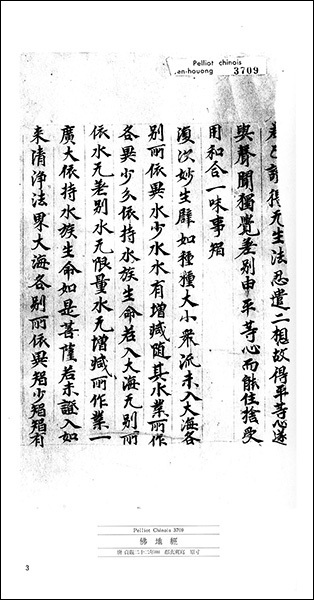 Pelliot chinois
en-houong 3709
若已證得无生法忍遣二想故得平等心遂
與聲聞獨覺差別由平等心而能住捨受
用和合一味事智
復次妙生譬如種種大小衆流未入大海各
別所依異水少水水有增減隨其水業所作
各異少分依持水族生命若入大海无別所
依水无差別水无限量水无增減所作業一
廣大依持水族生命如是菩薩若未證入如
來清淨法界大海各別所依異智少智智有
Pelliot Chinois 3709
佛地經
唐 貞觀二十二年(648)
3